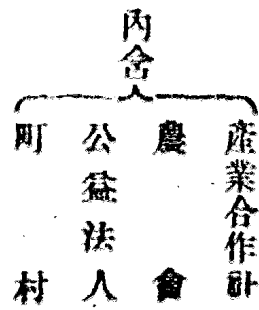 內含
產業合作社
農會
公益法人
町村